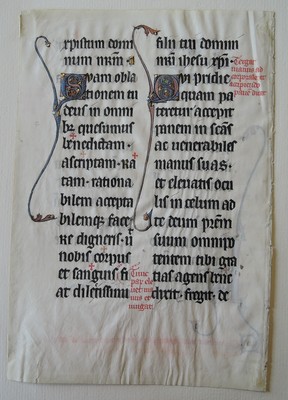 xpistum domi
num nrm
Quam obla
tionem tu
deus in omni
bz quesumus
benedictam
ascriptam ra
tam rationa
bilem accepta
bilemqz face
re digneris ut
nobis corpus
et sanguis fi
at dilectissimi
filii tui domini
nri ihesu xpi
Qui pridie
quam pa
teretur accepit
panem in scas
ac venerabiles
manus suas
et elevatis ocu
lis in celum ad
te deum prem
suum omnipo
tentem tibi gra
tias agens bene
dixit fregit de